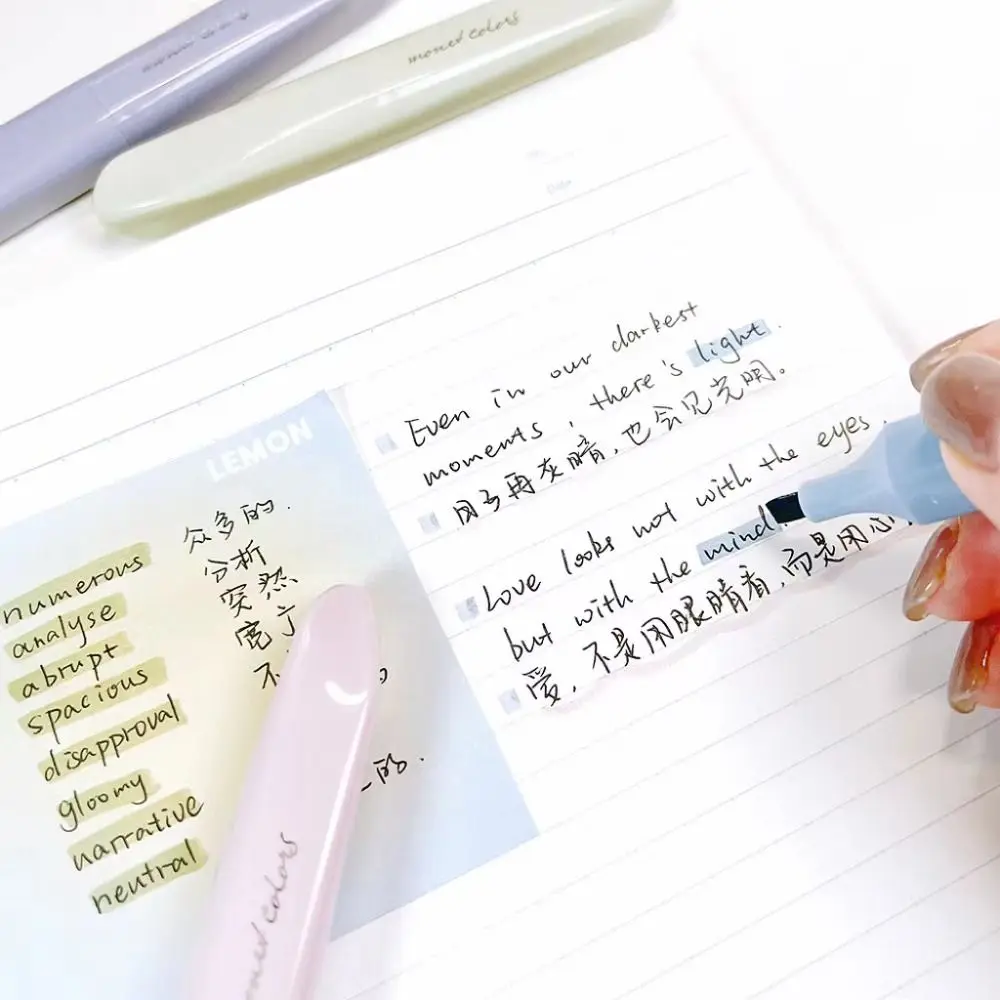 monet colors
Date
Even in our darkest
moments, there's light.
再灰暗，也会见光明。
Love looks not with the eyes,
but with the mind.
爱，不是用眼睛看，而是用心
LEMON
numerous 众多的.
analyse 分析
abrupt 突然
spacious 宽
disapproval 不
gloomy
narrative
neutral 的.
monet colors